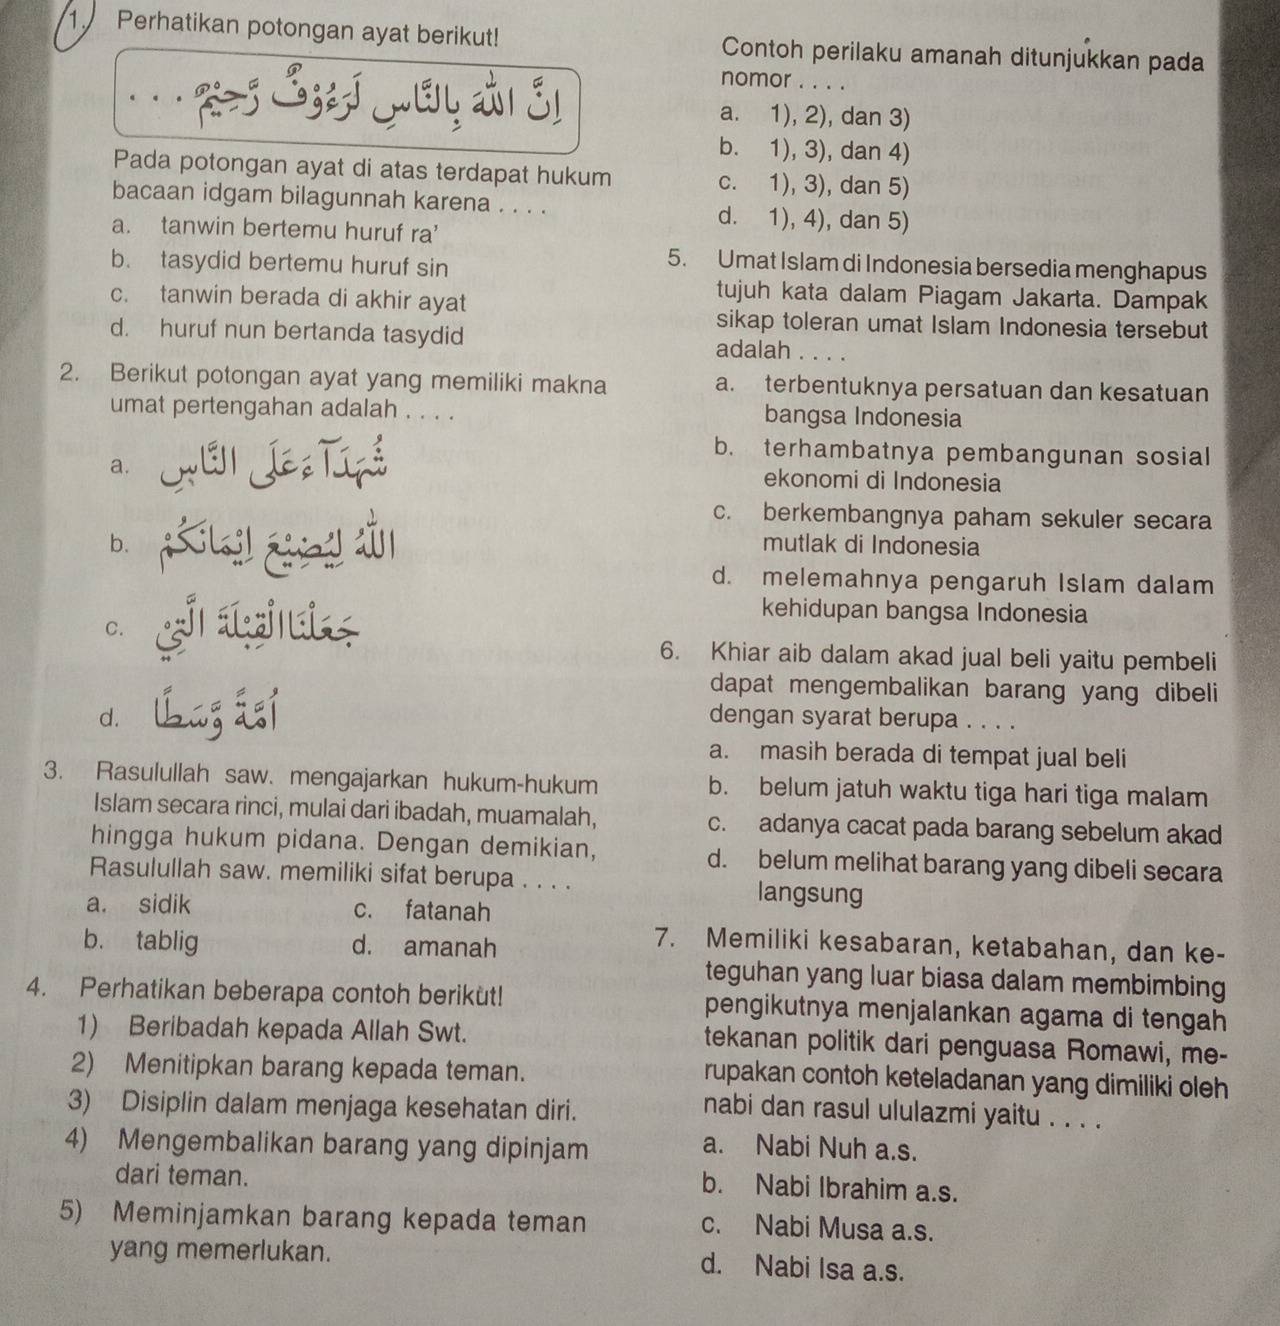 1. Perhatikan potongan ayat berikut!
إِنَّ اللّٰهَ بِالنَّاسِ لَرَءُوْفٌ رَّحِيْمٌ . . .
Pada potongan ayat di atas terdapat hukum
bacaan idgam bilagunnah karena . . . .
a. tanwin bertemu huruf ra'
b. tasydid bertemu huruf sin
c. tanwin berada di akhir ayat
d. huruf nun bertanda tasydid
2. Berikut potongan ayat yang memiliki makna
umat pertengahan adalah . . . .
a. شُهَدَآءَ عَلَى النَّاسِ
b. اللّٰهُ لِيُضِيْعَ اِيْمَانَكُمْ
c. جَعَلْنَا الْقِبْلَةَ الَّتِيْ
d. اُمَّةً وَّسَطًا
3. Rasulullah saw. mengajarkan hukum-hukum
Islam secara rinci, mulai dari ibadah, muamalah,
hingga hukum pidana. Dengan demikian,
Rasulullah saw. memiliki sifat berupa . . . .
a. sidik c. fatanah
b. tablig d. amanah
4. Perhatikan beberapa contoh berikut!
1) Beribadah kepada Allah Swt.
2) Menitipkan barang kepada teman.
3) Disiplin dalam menjaga kesehatan diri.
4) Mengembalikan barang yang dipinjam
dari teman.
5) Meminjamkan barang kepada teman
yang memerlukan.
Contoh perilaku amanah ditunjukkan pada
nomor . . . .
a. 1), 2), dan 3)
b. 1), 3), dan 4)
c. 1), 3), dan 5)
d. 1), 4), dan 5)
5. Umat Islam di Indonesia bersedia menghapus
tujuh kata dalam Piagam Jakarta. Dampak
sikap toleran umat Islam Indonesia tersebut
adalah . . . .
a. terbentuknya persatuan dan kesatuan
bangsa Indonesia
b. terhambatnya pembangunan sosial
ekonomi di Indonesia
c. berkembangnya paham sekuler secara
mutlak di Indonesia
d. melemahnya pengaruh Islam dalam
kehidupan bangsa Indonesia
6. Khiar aib dalam akad jual beli yaitu pembeli
dapat mengembalikan barang yang dibeli
dengan syarat berupa . . . .
a. masih berada di tempat jual beli
b. belum jatuh waktu tiga hari tiga malam
c. adanya cacat pada barang sebelum akad
d. belum melihat barang yang dibeli secara
langsung
7. Memiliki kesabaran, ketabahan, dan ke-
teguhan yang luar biasa dalam membimbing
pengikutnya menjalankan agama di tengah
tekanan politik dari penguasa Romawi, me-
rupakan contoh keteladanan yang dimiliki oleh
nabi dan rasul ululazmi yaitu . . . .
a. Nabi Nuh a.s.
b. Nabi Ibrahim a.s.
c. Nabi Musa a.s.
d. Nabi Isa a.s.